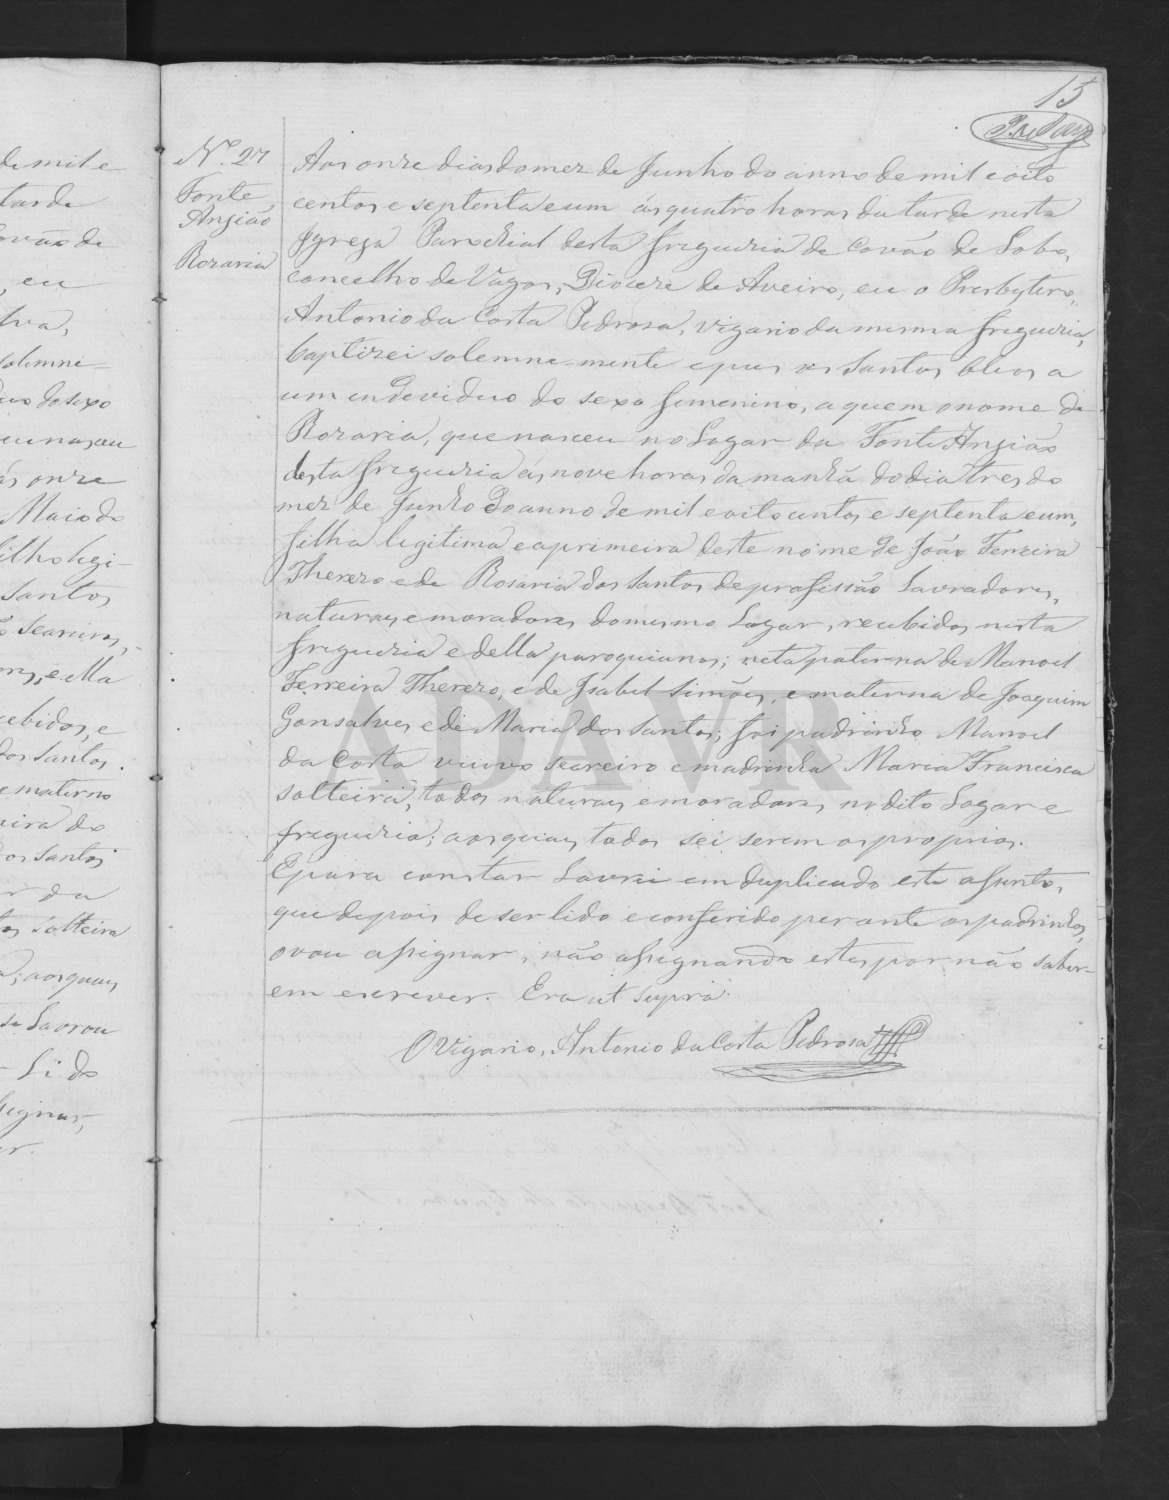 15
Nº. 27
Fonte
Angião
Rozaria
Aos onze dias do mez de Junho do anno de mil e oito
centos e septenta e um ás quatro horas da tarde nesta
Igreja Parochial desta freguezia de Covão de Lobo,
concelho de Vagos, Diocese de Aveiro, eu o Presbytero,
Antonio da Costa Pedrosa, vigario da mesma freguezia,
baptizei solemne-mente e puz os Santos Oleos a
um endeviduo do sexo femenino, a quem o nome de
Rozaria, que nasceu no Logar da Fonte Angião
desta freguezia as nove horas da manhã do dia tres do
mez de Junho do anno de mil e oitocentos e septenta e um,
filha legitima e a primeira deste nome de João Ferreira
Therezo e de Rosaria dos Santos de profissão Lavradores,
naturaes e moradores do mesmo Logar, recebidos nesta
freguezia e della paroquianos; neta paterna de Manoel
Ferreira Therezo, e de Isabel Simões, e materna de Joaquim
Gonsalves e de Maria dos Santos; foi padrinho Manoel
da Costa viuvo seareiro e madrinha Maria Francisca
solteira, todos naturaes e moradores no dito Logar e
freguezia; aos quaes todos sei serem os proprios.
E para constar Lavrei em duplicado este assento,
que depois de ser lido e conferido perante os padrinhos,
o vou assignar, não assignando estes por não saber-
em escrever. Era ut supra.
O Vigario, Antonio da Costa Pedrosa
de mil e
tarde
Covão de
, eu
solemne-
duo do sexo
que nasceu
ás onze
Maio do
filho legi-
Santos
seareiros,
e ella
recebidos, e
dos Santos.
e materno
dos Santos
da
solteira
; aos quaes
se Lavrou
Lido
ADAVR